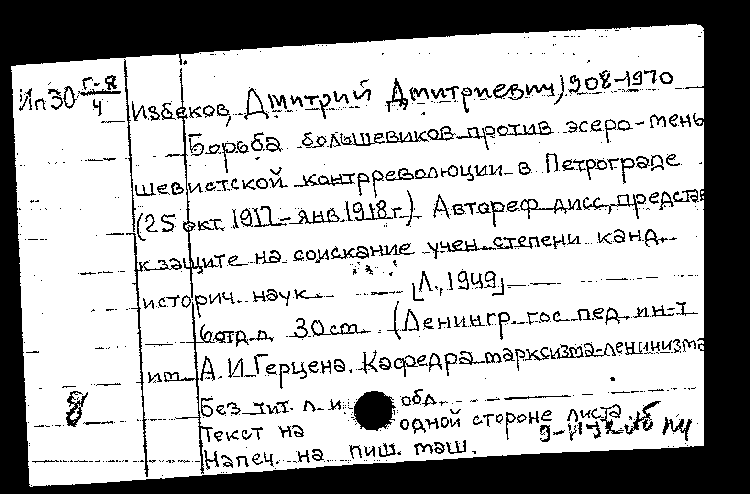 Ип30 Г-Я/4
Избеков, Дмитрий Дмитриевич, 1908-1970
Борьба большевиков против эсеро-мень
шевистской контрреволюции в Петрограде
(25 окт. 1917 - янв. 1918 г.) Автореф. дисс., представ
к защите на соискание учен. степени канд.
историч. наук. [Л., 1949]
6 отд. л. 30 см. (Ленингр. гос. пед. ин-т
им. А. И. Герцена. Кафедра марксизма-ленинизма
Без тит. л. и обл.
Текст на одной стороне листа
Напеч. на пиш. маш.
8